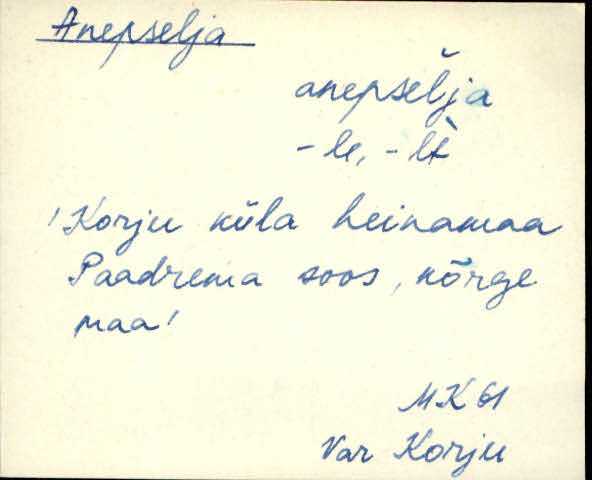 Anepselja
anepsel̆ja
-le, -lt̀
'Korju küla heinamaa
Paadrema soos, kõrge
maa'
MK 61
Var Korju